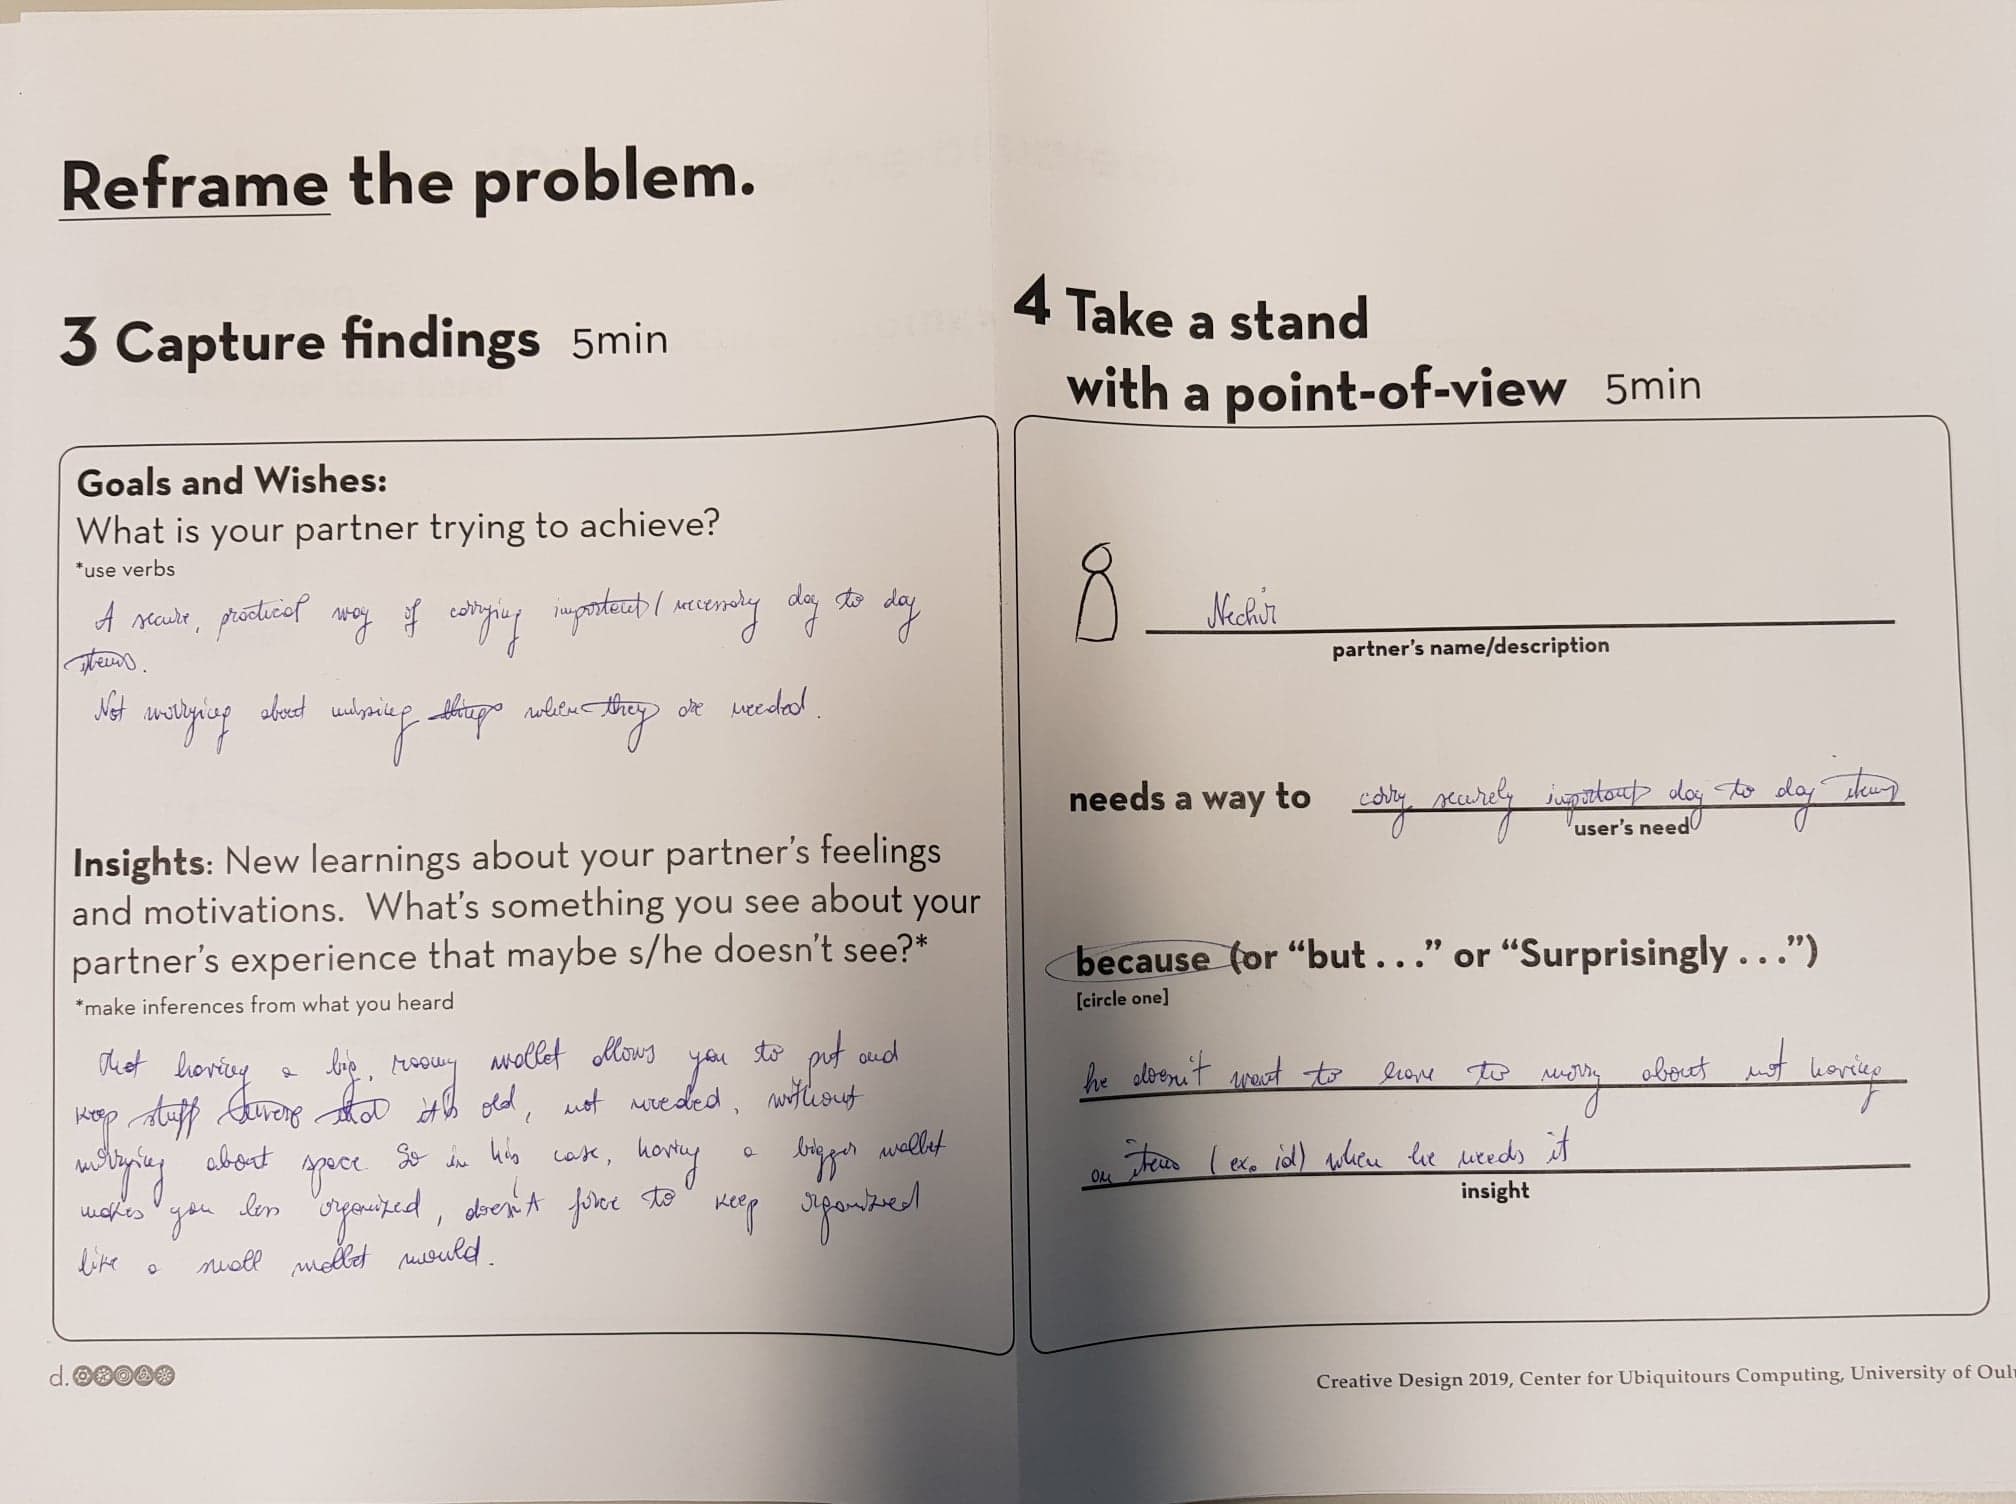 Reframe the problem.
3 Capture findings 5min
Goals and Wishes:
What is your partner trying to achieve?
*use verbs
A secure, practical way of carrying important / necessary day to day
items.
Not worrying about missing things when they are needed.
Insights: New learnings about your partner's feelings
and motivations. What's something you see about your
partner's experience that maybe s/he doesn't see?*
*make inferences from what you heard
that having a big, roomy wallet allows you to put and
keep stuff that it's old, not needed, without
worrying about space. So in his case, having a bigger wallet
makes you less organized, doesn't force to keep organized
like a small wallet would.
d.
4 Take a stand
with a point-of-view 5min
Nechir
partner's name/description
needs a way to carry securely important day to day items
user's need
because (or "but . . ." or "Surprisingly . . .")
[circle one]
he doesn't want to have to worry about not having
an item (ex. id) when he needs it
insight
Creative Design 2019, Center for Ubiquitours Computing, University of Oulu